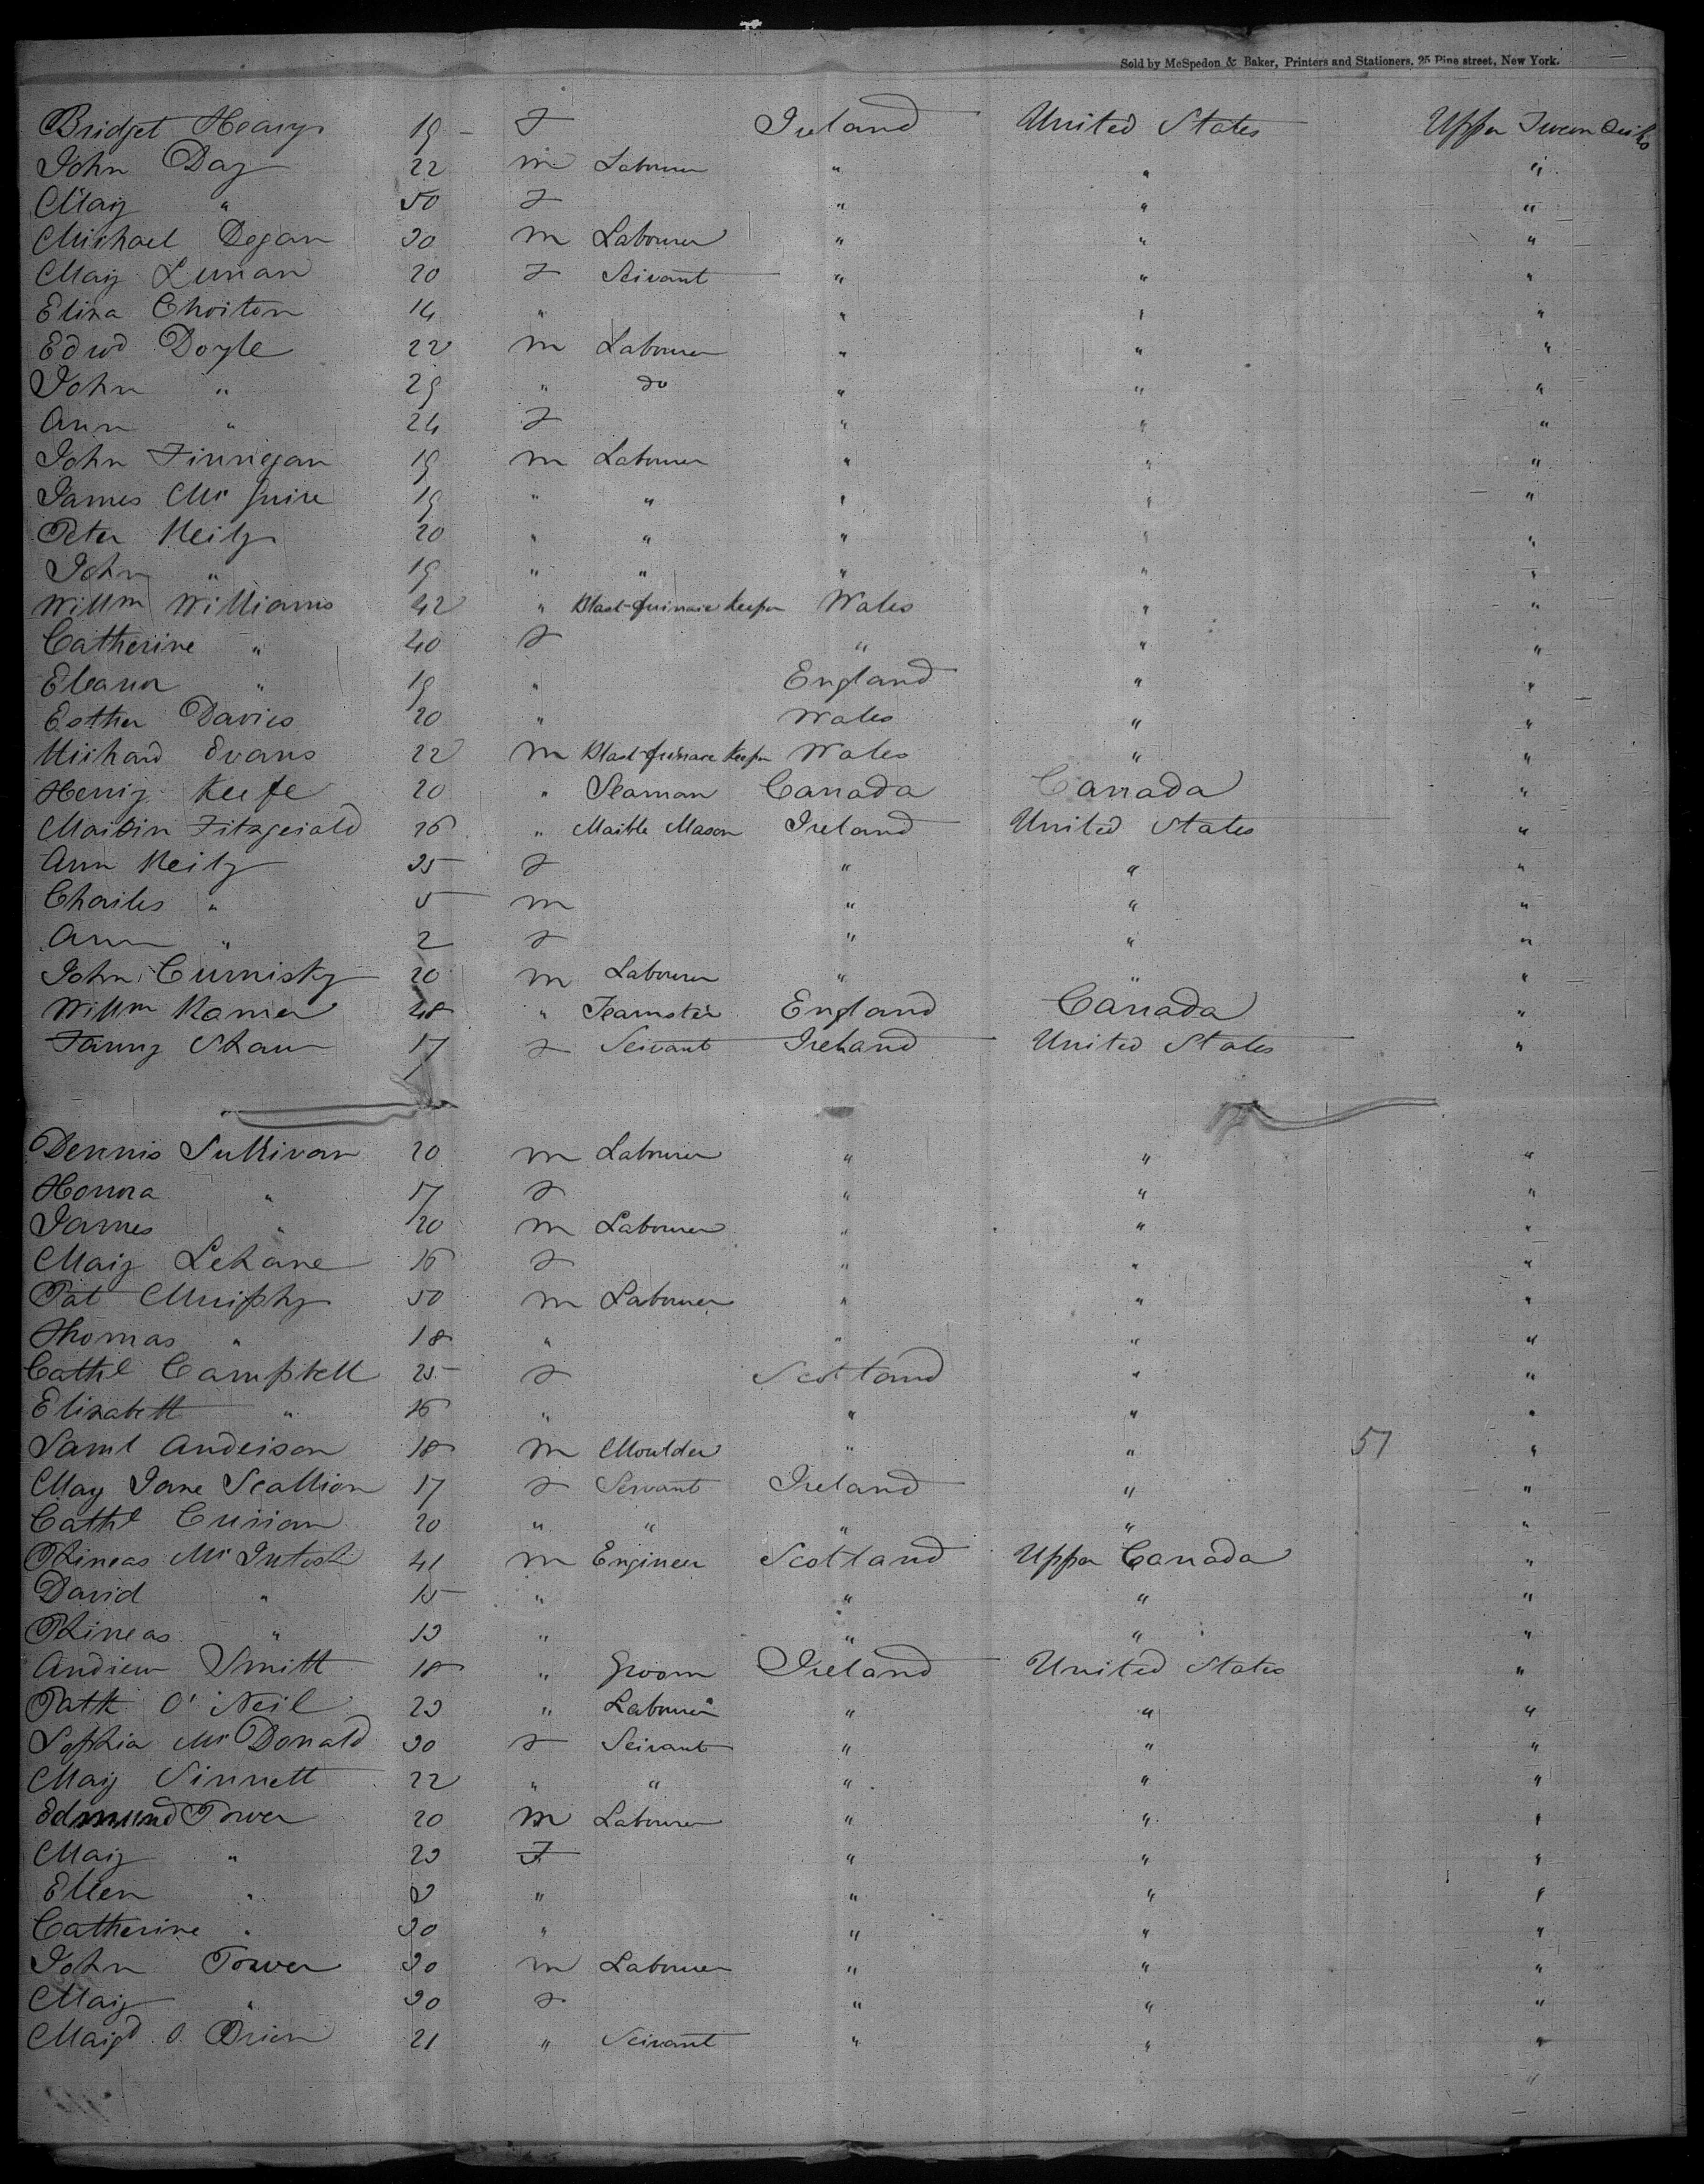 Sold by McSpedon & Baker, Printers and Stationers, 25 Pine street, New York.
Bridget Heany 19 F Ireland United States Upper Tween Decks
John Day 22 m Labourer " " "
Mary " 50 F " " "
Michael Degan 30 m Labourer " " "
Mary Lunan 20 F Servant " " "
Eliza Choriton 14 " " " "
Edwd Doyle 22 m Labourer " " "
John " 29 " do " " "
Ann " 24 F " " "
John Finnegan 19 m Labourer " " "
James Mc Guire 19 " " " " "
Peter Reily 20 " " " " "
John " 19 " " " " "
Willm Williams 42 " Blast-furnace Keeper Wales " "
Catherine " 40 F " " "
Eleanor " 19 " England " "
Esther Davies 20 " Wales " "
Richard Evans 22 m Blast-furnace Keeper Wales " "
Henry Keefe 20 " Seaman Canada Canada "
Martin Fitzgerald 26 " Marble Mason Ireland United States "
Ann Reily 35 F " " "
Charles " 5 m " " "
Ann " 2 F " " "
John Cumisky 20 m Labourer " " "
Willm Ramer 48 " Teamster England Canada "
Fanny Shaw 17 F Servant Ireland United States "
Dennis Sullivan 20 m Labourer " " "
Honora " 17 F " " "
James " 20 m Labourer " " "
Mary Lehane 16 F " " "
Pat Murphy 50 m Labourer " " "
Thomas " 18 " " " "
Cathe Campbell 25 F Scotland " "
Elizabeth " 26 " " " "
Saml Anderson 18 m Moulder " " 57 "
Mary Jane Scallion 17 F Servant Ireland " "
Cathe Curran 20 " " " " "
Phineas Mc Intosh 41 m Engineer Scotland Upper Canada "
David " 15 " " " "
Phineas " 13 " " " "
Andrew Smith 18 " Groom Ireland United States "
Patk O'Neil 23 " Labourer " " "
Sophia Mc Donald 30 F Servant " " "
Mary Sinnett 22 " " " " "
Edmund Power 20 m Labourer " " "
Mary " 23 F " " "
Ellen " 3 " " " "
Catherine " 30 " " " "
John Power 30 m Labourer " " "
Mary " 30 F " " "
Margt O Brien 21 " Servant " " "
"